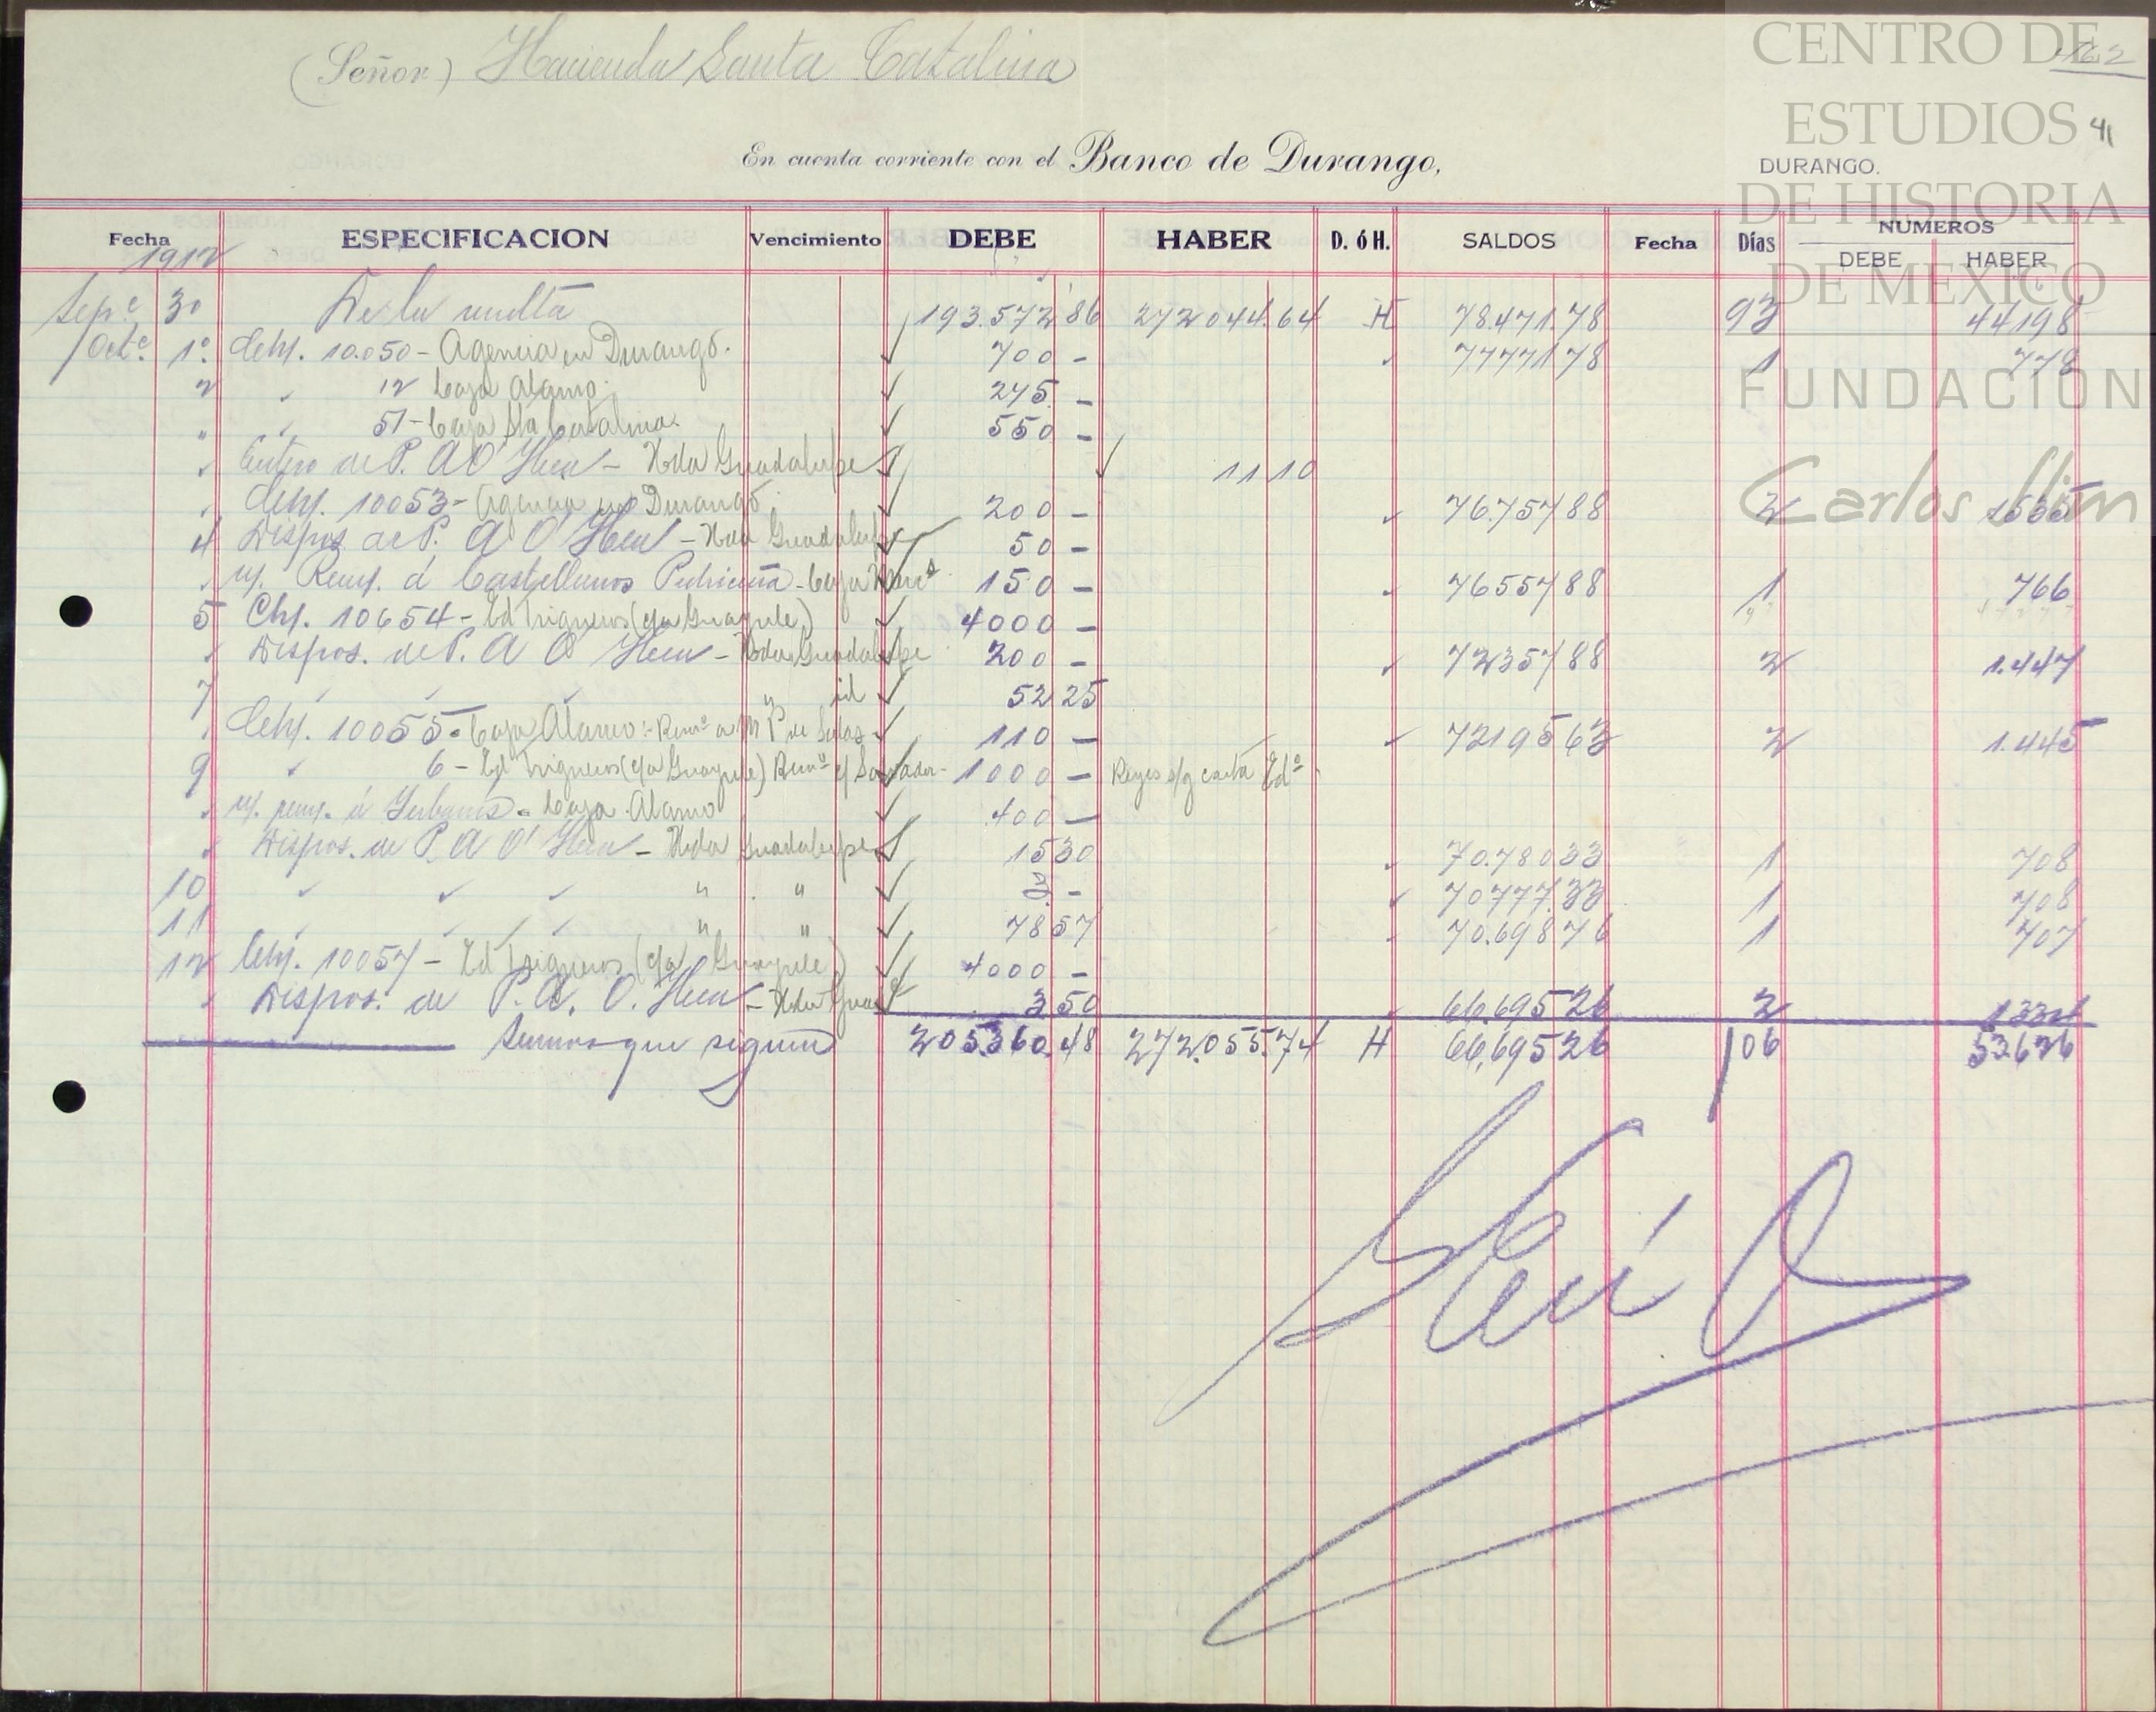 CENTRO DE
ESTUDIOS
DE HISTORIA
DE MEXICO
FUNDACIÓN
Carlos Slim
41
(Señor) Hacienda Santa Catalina
En cuenta corriente con el Banco de Durango,
DURANGO.
Fecha ESPECIFICACION Vencimiento DEBE HABER D. ó H. SALDOS Fecha Días NUMEROS
DEBE HABER
1912
Sepe 30 De la vuelta 193.572 86 272044.64 H 78.471.78 93 44198
Octe 1o. Ch/. 10.050 - Agencia en Durango. 700 - 77771 78 1 778
2 " 12 Caja Alamo. 275 -
" " 51 - Caja Sta Catalina. 550 -
" Entero de P. A O' Hea - Hda Guadalupe 11 10
" Ch/. 10053 - Agencia en Durango. 200 - " 76.757 88 2 1535
4 Dispos de P. A O' Hea - Hda Guadalupe 50 -
" n/. Rem/. á Castellanos - Caja 150 - " 76557 88 1 766
5 Ch/. 10654 - Ed Trigueros (c/a Guayule) 4000 -
" Dispos. de P. A O' Hea - Hda Guadalupe 200 - " 72357 88 2 1.447
7 " " " " id 52 25
" Ch/. 10055 - Caja Alamo :- Rema a M P de Salas 110 - " 72195 63 2 1.445
9 " 6 - Ed Trigueros (c/a Guayule) Rema c/ Salvador - 1000 - Reyes s/g carta Eda.
" n/. rem/. á - Caja Alamo 400 -
" Dispos. de P. A O' Hea - Hda Guadalupe 15 30 " 70.780 33 1 708
10 " " " " " 3 - " 70777.33 1 708
11 " " " " " 78 57 " 70.698 76 1 707
12 Ch/. 10057 - Ed Trigueros (c/a Guayule) 4000 -
" Dispos. de P. A. O. Hea - Hda Guade 3 50 " 66.695 26 2 1334
Sumas que siguen 205.360.48 272.055.74 H 66,695 26 106 53626